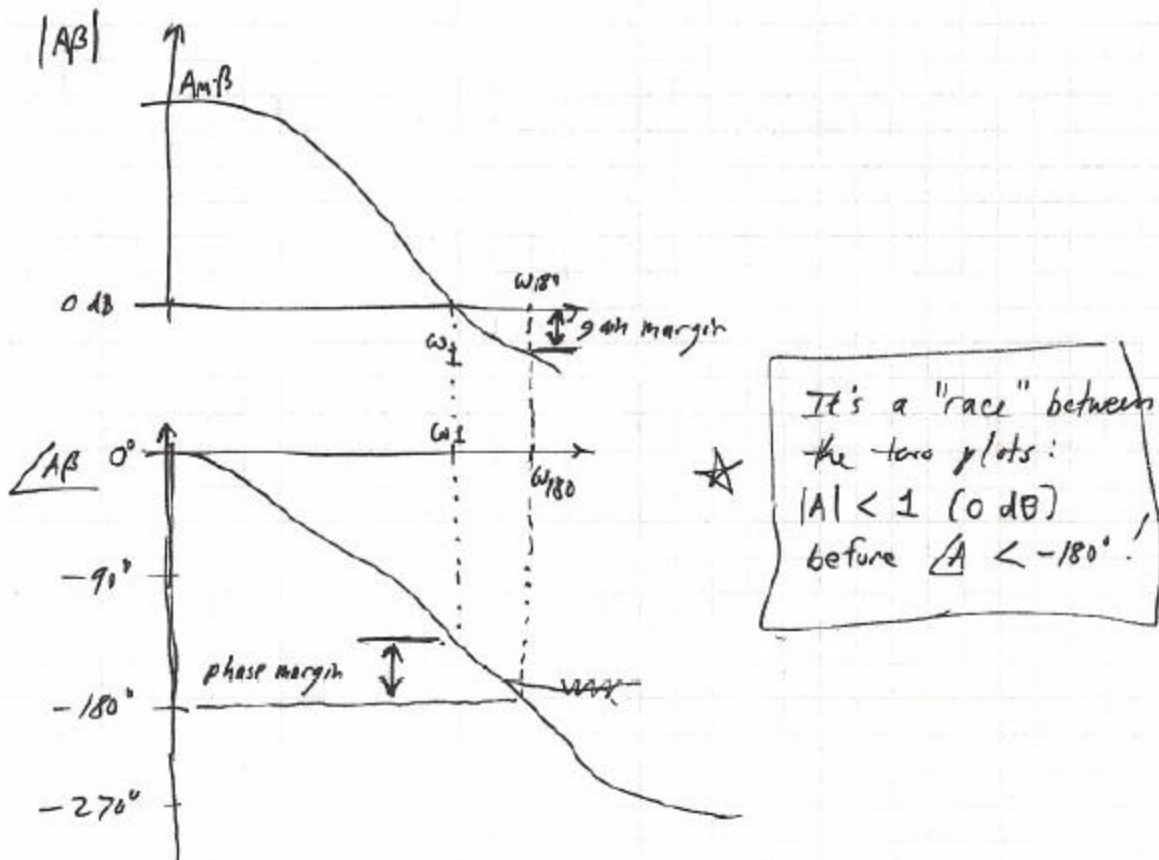 |Aβ|
A_M·β
0 dB
ω180
gain margin
ω1
ω1
ω180
∠Aβ
0°
-90°
phase margin
-180°
-270°
It's a "race" between
the two plots:
|A| < 1 (0 dB)
before ∠A < -180°!